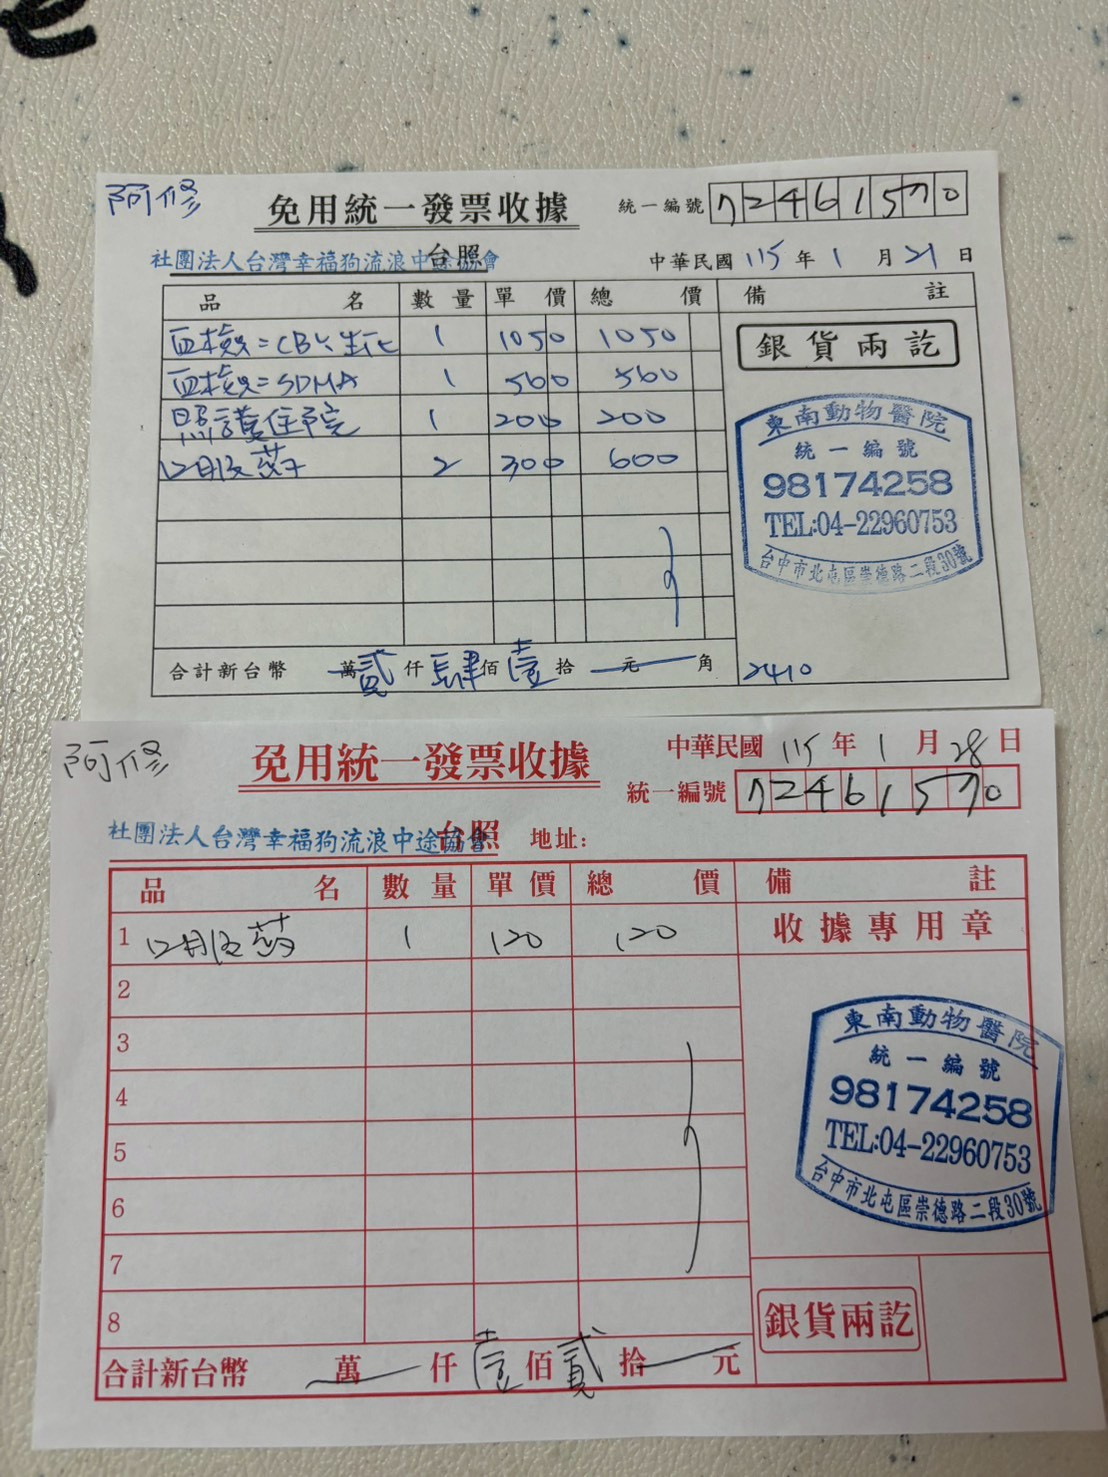 阿修
免用統一發票收據
統一編號 72461570
社團法人台灣幸福狗流浪中途協會 台照
中華民國 115 年 1 月 21 日
品名 數量 單價 總價 備註
血檢=CBC、生化 1 1050 1050
銀貨兩訖
血檢=SDMA 1 560 560
照護住院 1 200 200
口服藥 2 300 600
東南動物醫院
統一編號
98174258
TEL:04-22960753
台中市北屯區崇德路二段30號
合計新台幣 萬貳仟肆佰壹拾元角
2410
阿修
免用統一發票收據
中華民國 115 年 1 月 28 日
統一編號 72461570
社團法人台灣幸福狗流浪中途協會 台照 地址:
品名 數量 單價 總價 備註
1 口服藥 1 120 120
收據專用章
2
3
4
5
6
7
8
東南動物醫院
統一編號
98174258
TEL:04-22960753
台中市北屯區崇德路二段30號
銀貨兩訖
合計新台幣 萬仟壹佰貳拾元